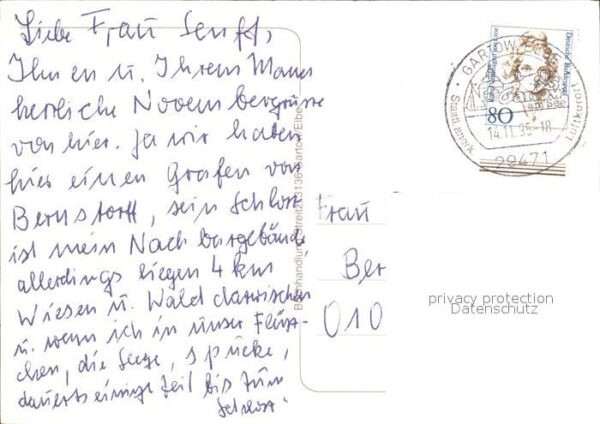 Liebe Frau Senff,
Ihnen u. Ihrem Mann
herzliche Novembergrüsse
von hier. Ja wir haben
hier einen Grafen von
Bernstorff, sein Schloss
ist mein Nachbargebäude
allerdings liegen 4 km
Wiesen u. Wald dazwischen
u. wenn ich in unser Flüss-
chen, die Seege, spucke,
dauerts einige Zeit bis zum
Schloss.
Deutsche Bundespost
80
GARTOW, ELBE
am See
Staatl. anerk. Luftkurort
14.11.95-18
29471
Frau
Ber
010
privacy protection
Datenschutz